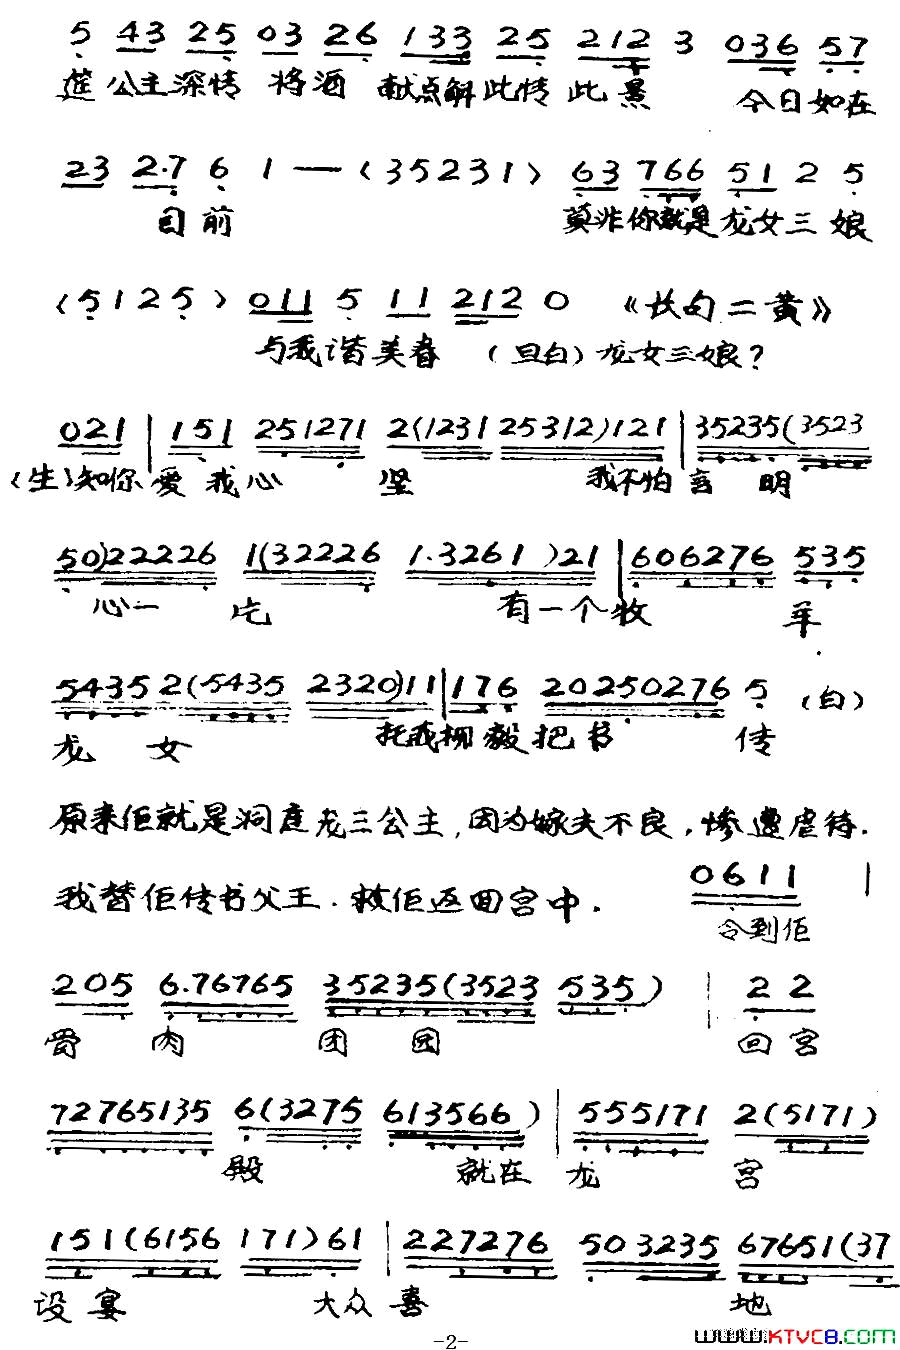 5 43 25 03 26 133 25 212 3 036 57
莲公主深情 将酒 献点解此情此景 今日如在
23 2·7 6 1 — (35231) 63 766 51 2 5
目前 莫非你就是龙女三娘
(5125) 011 5 11 212 0 《长句二黄》
与我谐美眷 (旦白)龙女三娘？
021 | 151 251271 2(1231 25312)121 | 35235(3523
(生)知你爱我心 坚 我不怕言 明
50)22226 1(32226 1·3261)21 | 606276 535
心一 片 有一个牧 羊
54352(5435 2320)11 | 176 20250276 5 (白)
龙 女 托我柳毅把书 传
原来佢就是洞庭龙三公主，因为嫁夫不良，惨遭虐待．
我替佢传书父王．救佢返回宫中． 0611 |
令到佢
205 6·76765 35235(3523 535) | 2 2
骨 肉 团 园 回宫
72765135 6(3275 613566) | 555171 2(5171)
殿 就在 龙 宫
151(6156 171)61 | 227276 503235 67651(37
设宴 大众喜 地
-2-
WWW.KTVC8.COM